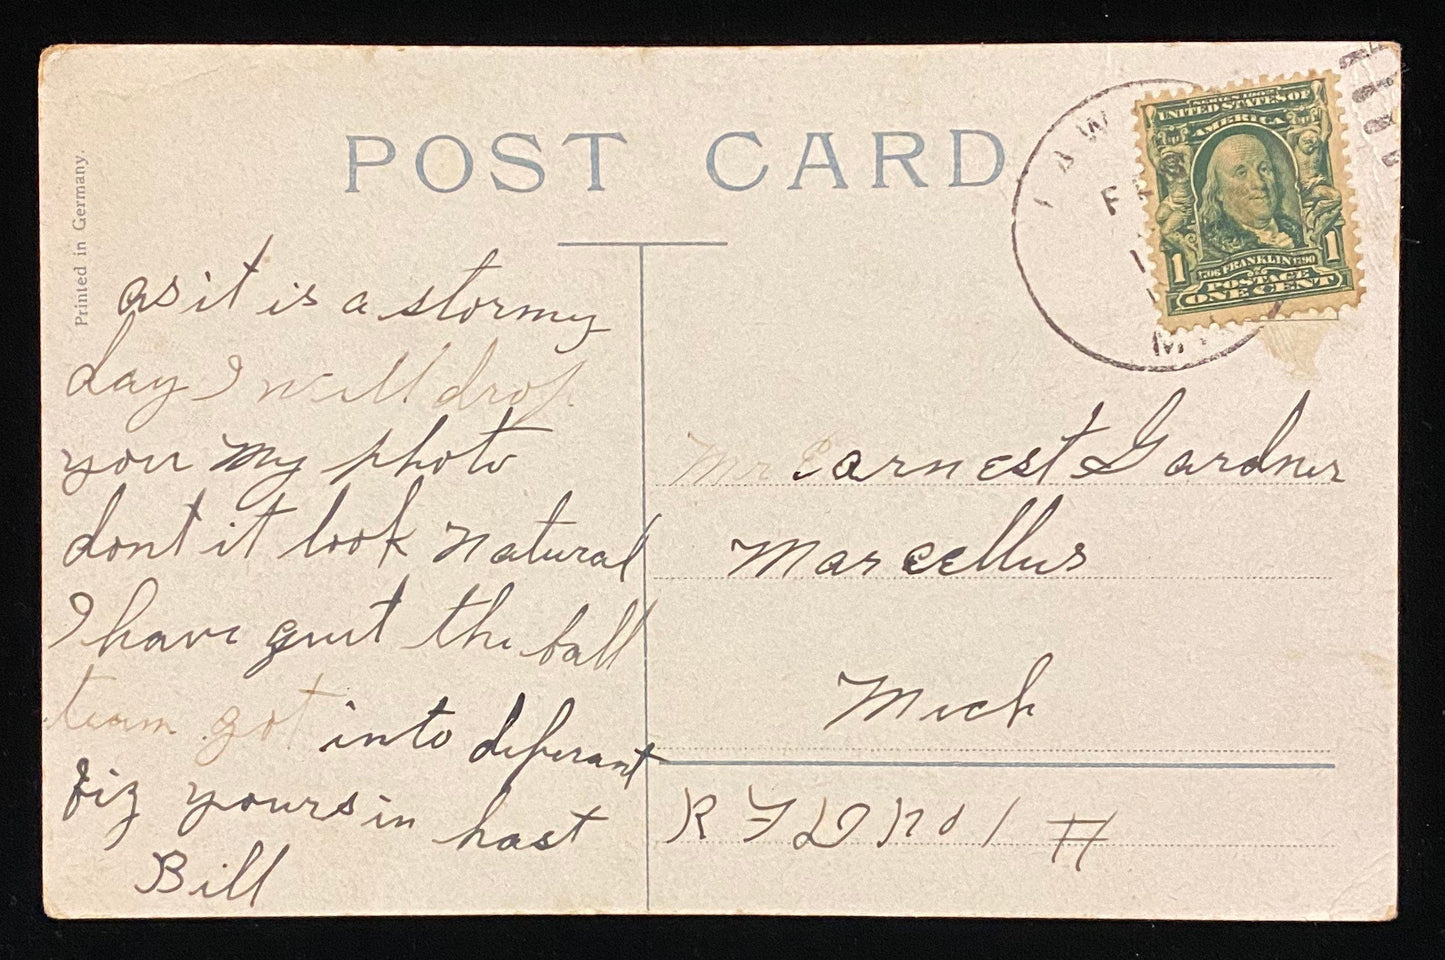 POST CARD
Printed in Germany.
LAW
FEB
M
SERIES 1902
UNITED STATES OF
AMERICA
1 1
1706 FRANKLIN 1790
POSTAGE
ONE CENT
as it is a stormy
day I will drop
you my photo
dont it look natural
I have quit the ball
team got into diferant
biz yours in hast
Bill
Mr Earnest Gardner
Marcellus
Mich
RFD no 1 #